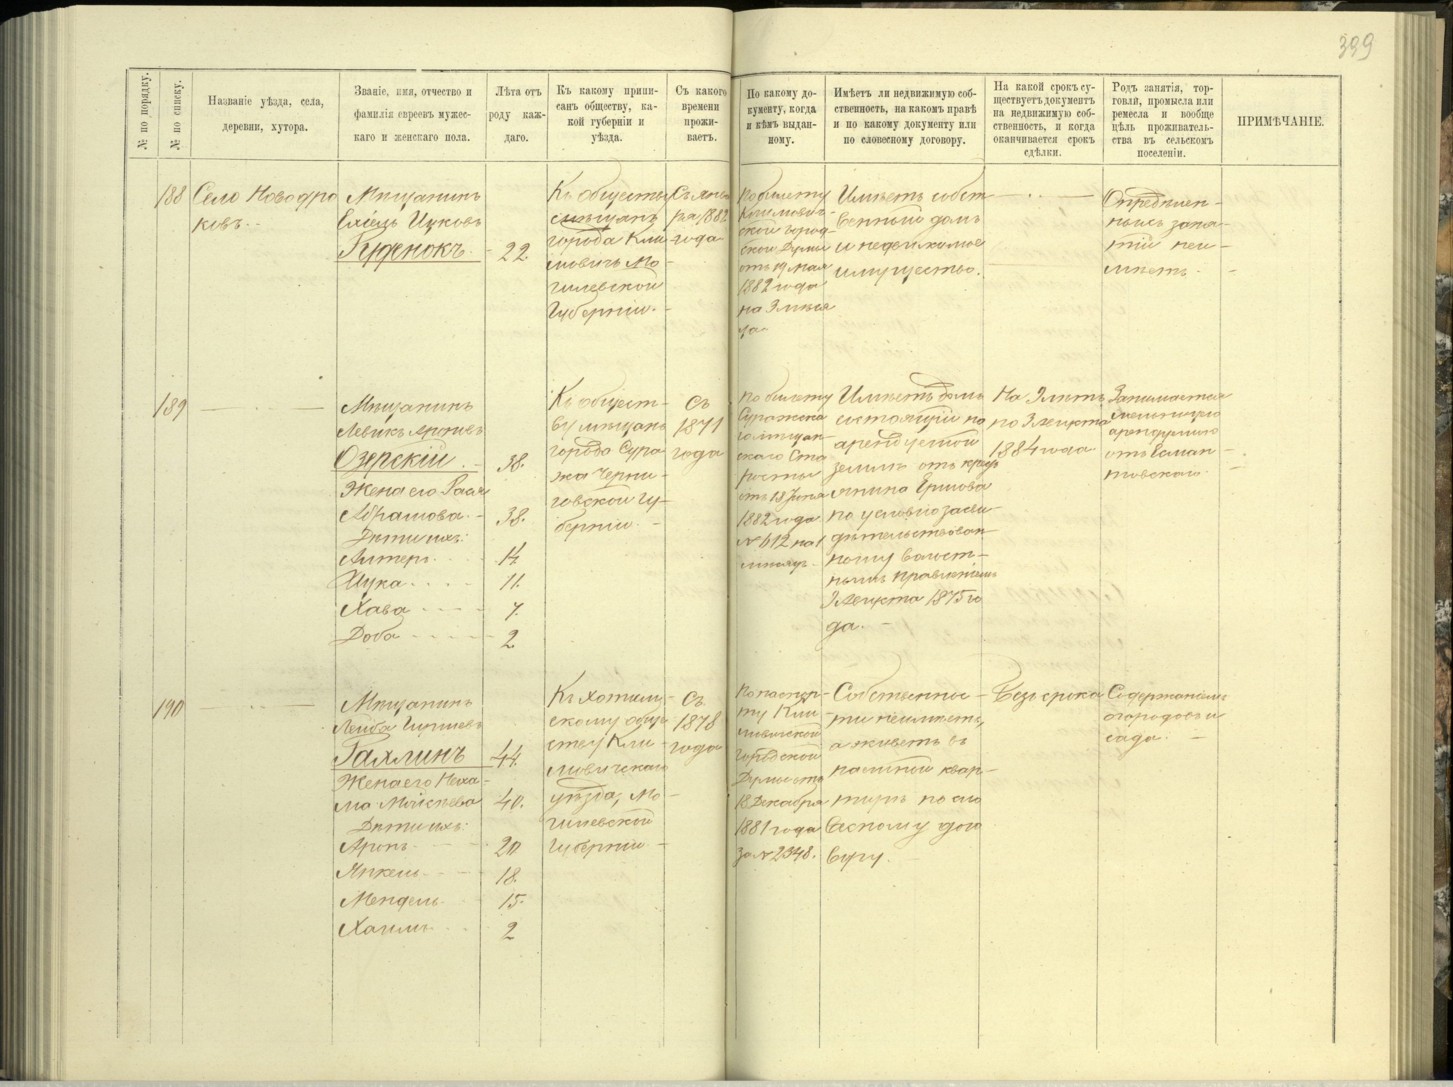 399
№ по порядку.
№ по списку.
Названіе уѣзда, села,
деревни, хутора.
Званіе, имя, отчество и
фамилія евреевъ мужес-
каго и женскаго пола.
Лѣта отъ
роду каж-
даго.
Къ какому припи-
санъ обществу, ка-
кой губерніи и
уѣзда.
Съ какого
времени
прожи-
ваетъ.
По какому до-
кументу, когда
и кѣмъ выдан-
ному.
Имѣетъ ли недвижимую соб-
ственность, на какомъ правѣ
и по какому документу или
по словесному договору.
На какой срокъ су-
ществуетъ документъ
на недвижимую соб-
ственность, и когда
оканчивается срокъ
сдѣлки.
Родъ занятія, тор-
говли, промысла или
ремесла и вообще
цѣль проживатель-
ства въ сельском
поселеніи.
ПРИМѢЧАНІЕ.
188
Село Новодро
ковъ
Мѣщанинъ
Ицковъ
Гуренокъ
22.
Къ обществу
мѣщанъ
города Кли
мовичъ Мо-
гилевской
Губерніи.
Съ янва
ря 1882
года
По билету
Климович-
ской Город-
ской Думы
отъ 19 Мая
1882 года
на 3 мѣся
ца
Имѣетъ собст
венный домъ
и недвижимое
имущество.
Опредѣлен-
ныхъ заня-
тій неи-
мѣетъ
189
Мѣщанинъ
Левикъ
Озерскій
38.
Жена его
Абрамова
38.
Дѣти ихъ:
Алтеръ
14
Цука
11.
Хава
7.
Доба
2
Къ общест-
ву мѣщанъ
города Сура
жа Черни-
говской Гу-
берніи
Съ
1871
года
По билету
Суражска
го мѣщан-
скаго Ста
росты
отъ 18 Іюня
1882 года
№ 612 на 1
мѣсяцъ
Имѣетъ домъ
состоящій на
арендуемой
землѣ отъ крест
янина Ершова
по условію засви
дѣтельствован-
ному Волост-
нымъ правленіемъ
3 Августа 1875 го
да.
На 9 лѣтъ
по 3 Августа
1884 года
Занимается
мельницею
арендуемою
отъ Есман-
товскаго
190
Мѣщанинъ
Лейба
Галлинъ
44.
Жена его Неха-
ма Мойсѣева
40.
Дѣти ихъ:
Аронъ
20
Янкель
18.
Мендель
15.
Хаимъ
2
Къ Хотим-
скому обще
ству Кли-
мовичскаго
уѣзда, Мо-
гилевской
Губерніи
Съ
1878
года
По паспор-
ту Кли
мовичской
городской
Думы отъ
18 Декабря
1881 года
за № 2348.
Собственнос-
ти неимѣетъ,
а живетъ въ
наемной квар-
тирѣ по сло
весному дого
вору.
Безъ срока
Содержаніемъ
огородовъ и
сада.